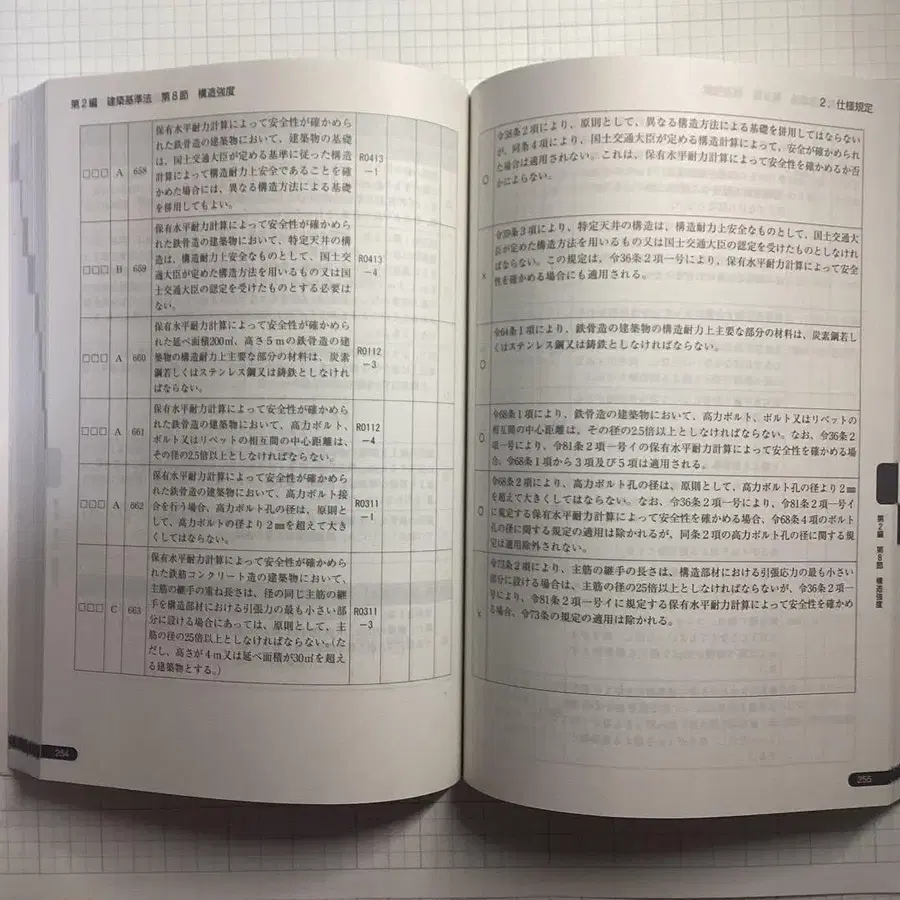 第2編 建築基準法 第8節 構造強度
□□□ A 658
保有水平耐力計算によって安全性が確かめら
れた鉄骨造の建築物において、建築物の基礎
は、国土交通大臣が定める基準に従った構造
計算によって構造耐力上安全であることを確
かめた場合には、異なる構造方法による基礎
を併用してもよい。
R0413
-1
□□□ B 659
保有水平耐力計算によって安全性が確かめら
れた鉄骨造の建築物において、特定天井の構
造は、構造耐力上安全なものとして、国土交
通大臣が定めた構造方法を用いるもの又は国
土交通大臣の認定を受けたものとする必要は
ない。
R0413
-4
□□□ A 660
保有水平耐力計算によって安全性が確かめら
れた延べ面積200㎡、高さ5mの鉄骨造の建
築物の構造耐力上主要な部分の材料は、炭素
鋼若しくはステンレス鋼又は鋳鉄としなけれ
ばならない。
R0112
-3
□□□ A 661
保有水平耐力計算によって安全性が確かめら
れた鉄骨造の建築物において、高力ボルト、
ボルト又はリベットの相互間の中心距離は、
その径の2.5倍以上としなければならない。
R0112
-4
□□□ A 662
保有水平耐力計算によって安全性が確かめら
れた鉄骨造の建築物において、高力ボルト接
合を行う場合、高力ボルト孔の径は、原則と
して、高力ボルトの径より2㎜を超えて大き
くしてはならない。
R0311
-1
□□□ C 663
保有水平耐力計算によって安全性が確かめら
れた鉄筋コンクリート造の建築物において、
主筋の継手の重ね長さは、径の同じ主筋の継
手を構造部材における引張力の最も小さい部
分に設ける場合にあっては、原則として、主
筋の径の25倍以上としなければならない。(た
だし、高さが4m又は延べ面積が30㎡を超え
る建築物とする。)
R0311
-3
254
2. 仕様規定
○
令38条2項により、原則として、異なる構造方法による基礎を併用してはならない
が、同条4項により、国土交通大臣が定める構造計算によって、安全が確かめられ
た場合は適用されない。これは、保有水平耐力計算によって安全性を確かめるか否
かによらない。
×
令39条3項により、特定天井の構造は、構造耐力上安全なものとして、国土交通大
臣が定めた構造方法を用いるもの又は国土交通大臣の認定を受けたものとしなけれ
ばならない。この規定は、令36条2項一号により、保有水平耐力計算によって安全
性を確かめる場合にも適用される。
○
令64条1項により、鉄骨造の建築物の構造耐力上主要な部分の材料は、炭素鋼若し
くはステンレス鋼又は鋳鉄としなければならない。
○
令68条1項により、鉄骨造の建築物において、高力ボルト、ボルト又はリベットの
相互間の中心距離は、その径の2.5倍以上としなければならない。なお、令36条2
項一号により、令81条2項一号イの保有水平耐力計算によって安全性を確かめる場
合、令68条1項から3項及び5項は適用される。
○
令68条2項により、高力ボルト孔の径は、原則として、高力ボルト孔の径より2㎜
を超えて大きくしてはならない。なお、令36条2項一号により、令81条2項一号イ
に規定する保有水平耐力計算によって安全性を確かめる場合、令68条4項のボルト
孔の径に関する規定の適用は除かれるが、同条2項の高力ボルト孔の径に関する規
定は適用除外されない。
×
令73条2項により、主筋の継手の長さは、構造部材における引張応力の最も小さい
部分に設ける場合は、主筋の径の25倍以上としなければならないが、令36条2項一
号により、令81条2項一号イに規定する保有水平耐力計算によって安全性を確かめ
る場合、令73条の規定の適用は除かれる。
第2編 第8節 構造強度
255